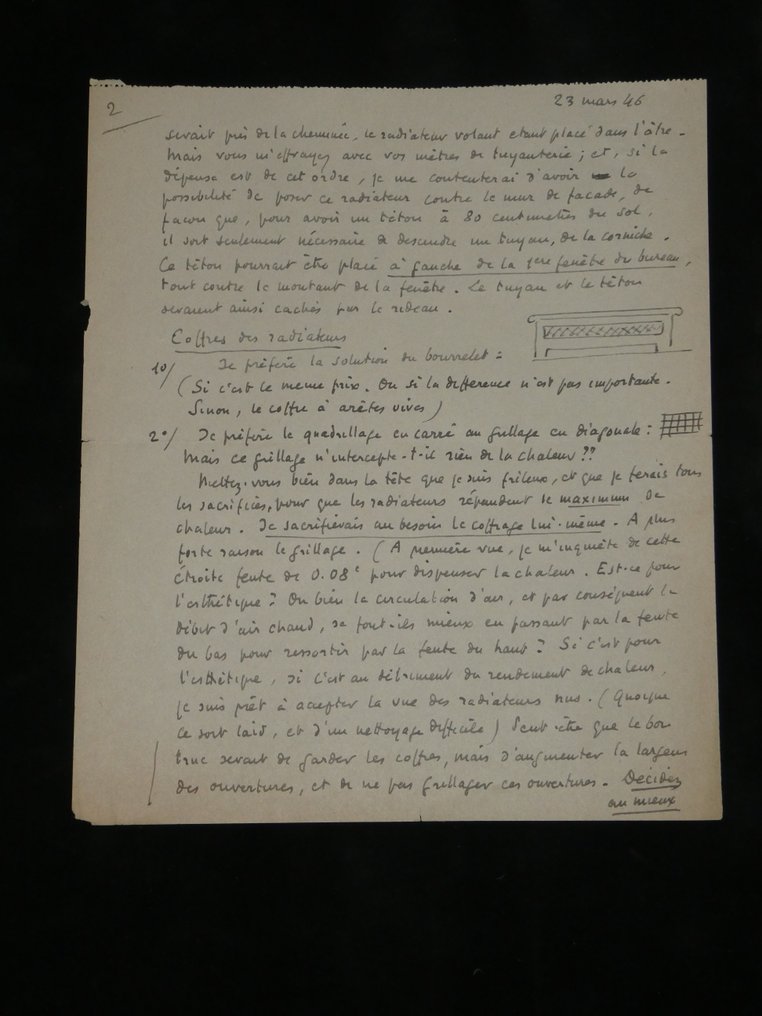 2
23 mars 46
serait près de la cheminée, le radiateur volant etant placé dans l'âtre.
Mais vous m'effrayez avec vos mètres de tuyauterie ; et, si la
dépense est de cet ordre, je me contenterai d'avoir la
possibilité de poser ce radiateur contre le mur de facade, de
façon que, pour avoir un téton à 80 centimètres du sol,
il soit seulement nécessaire de descendre un tuyau, de la corniche.
Ce téton pourrait être placé à gauche de la 1ere fenêtre du bureau,
tout contre le montant de la fenêtre. Le tuyau et le téton
seraient ainsi cachés par le rideau.
Coffres des radiateurs
1o/ Je préfère la solution du bourrelet :
(Si c'est le même prix. Ou si la différence n'est pas importante.
Sinon, le coffre à arêtes vives)
2o/ Je préfère le quadrillage en carré au grillage en diagonale :
Mais ce grillage n'intercepte-t-il rien de la chaleur ??
Mettez-vous bien dans la tête que je suis frileux, et que je ferais tous
les sacrifices, pour que les radiateurs répandent le maximum de
chaleur. Je sacrifierais au besoin le coffrage lui-même. A plus
forte raison le grillage. (A première vue, je m'inquiète de cette
étroite fente de 0.08c pour dispenser la chaleur. Est-ce pour
l'esthétique ? Ou bien la circulation d'air, et par conséquent le
débit d'air chaud, se font-ils mieux en passant par la fente
du bas pour ressortir par la fente du haut ? Si c'est pour
l'esthétique, si c'est au détriment du rendement de chaleur,
je suis prêt à accepter la vue des radiateurs nus. (Quoique
ce soit laid, et d'un nettoyage difficile) Peut-être que le bon
truc serait de garder les coffres, mais d'augmenter la largeur
des ouvertures, et de ne pas grillager ces ouvertures. Décidez
au mieux